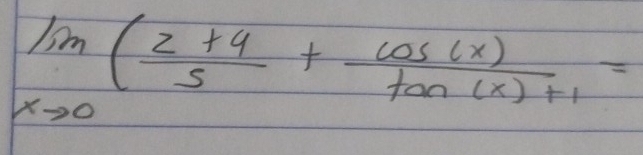 lim x→0 ( (2 + 4)/5 + cos(x)/(tan(x) + 1 =